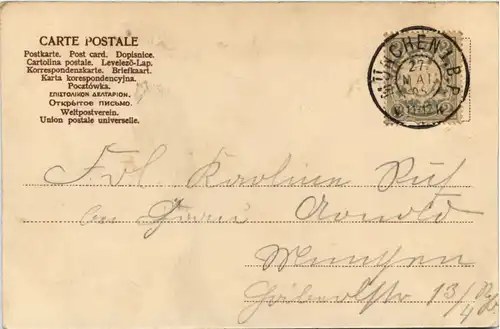 CARTE POSTALE
Postkarte. Post card. Dopisnice.
Cartolina postale. Levelező-Lap.
Korrespondenzkarte. Briefkaart.
Karta korespondencyjna.
Pocztówka.
ΕΠΙΣΤΟΛΙΚΟΝ ΔΕΛΤΑΡΙΟΝ.
Открытое письмо.
Weltpostverein.
Union postale universelle.
MÜNCHEN I.B.P.
27
MAI
Frl. Karoline
Frau Arnold
München
13/4